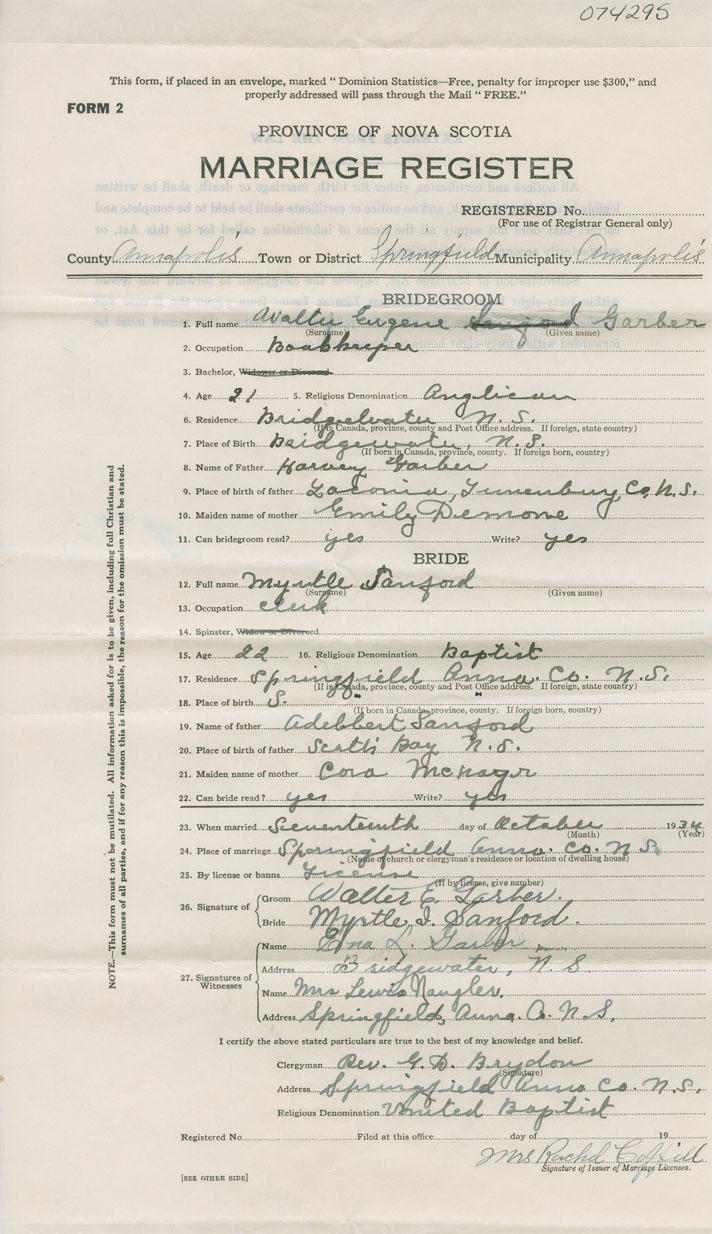 074295
This form, if placed in an envelope, marked “ Dominion Statistics—Free, penalty for improper use $300,” and
properly addressed will pass through the Mail “ FREE.”
FORM 2
PROVINCE OF NOVA SCOTIA
MARRIAGE REGISTER
REGISTERED No.
(For use of Registrar General only)
County Annapolis Town or District Springfield Municipality Annapolis
BRIDEGROOM
1. Full name Walter Eugene Sanford Garber
(Surname) (Given name)
2. Occupation Bookkeeper
3. Bachelor, Widower or Divorced
4. Age 21 5. Religious Denomination Anglican
6. Residence Bridgewater N. S.
(If in Canada, province, county and Post Office address. If foreign, state country)
7. Place of Birth Bridgewater, N. S.
(If born in Canada, province, county. If foreign born, country)
8. Name of Father Harvey Garber
9. Place of birth of father Laconia, Lunenburg Co, N. S.
10. Maiden name of mother Emily Demone
11. Can bridegroom read? yes Write? yes
BRIDE
12. Full name Myrtle Sanford
(Surname) (Given name)
13. Occupation clerk
14. Spinster, Widow or Divorced
15. Age 22 16. Religious Denomination Baptist
17. Residence Springfield Anna. Co. N. S.
(If in Canada, province, county and Post Office address. If foreign, state country)
18. Place of birth S. " "
(If born in Canada, province, county. If foreign born, country)
19. Name of father Adelbert Sanford
20. Place of birth of father Scotts Bay N. S.
21. Maiden name of mother Cora McNayr
22. Can bride read? yes Write? yes
23. When married Seventeenth day of October 1934
(Month) (Year)
24. Place of marriage Springfield Anna. Co. N. S.
(Name of church or clergyman's residence or location of dwelling house)
25. By license or banns License
(If by license, give number)
26. Signature of Groom Walter E. Garber.
Bride Myrtle I. Sanford.
27. Signatures of Witnesses
Name Edna L. Garber
Address Bridgewater, N S
Name Mrs Lewis Naugler.
Address Springfield, Anna. Co. N. S.
I certify the above stated particulars are true to the best of my knowledge and belief.
Clergyman Rev. G. D. Brydon
(Signature)
Address Springfield Anna Co. N. S.
Religious Denomination United Baptist
Registered No. Filed at this office day of 19
Mrs Rachel
Signature of Issuer of Marriage Licenses.
[SEE OTHER SIDE]
NOTE.—This form must not be mutilated. All information asked for is to be given, including full Christian and
surnames of all parties, and if for any reason this is impossible, the reason for the omission must be stated.